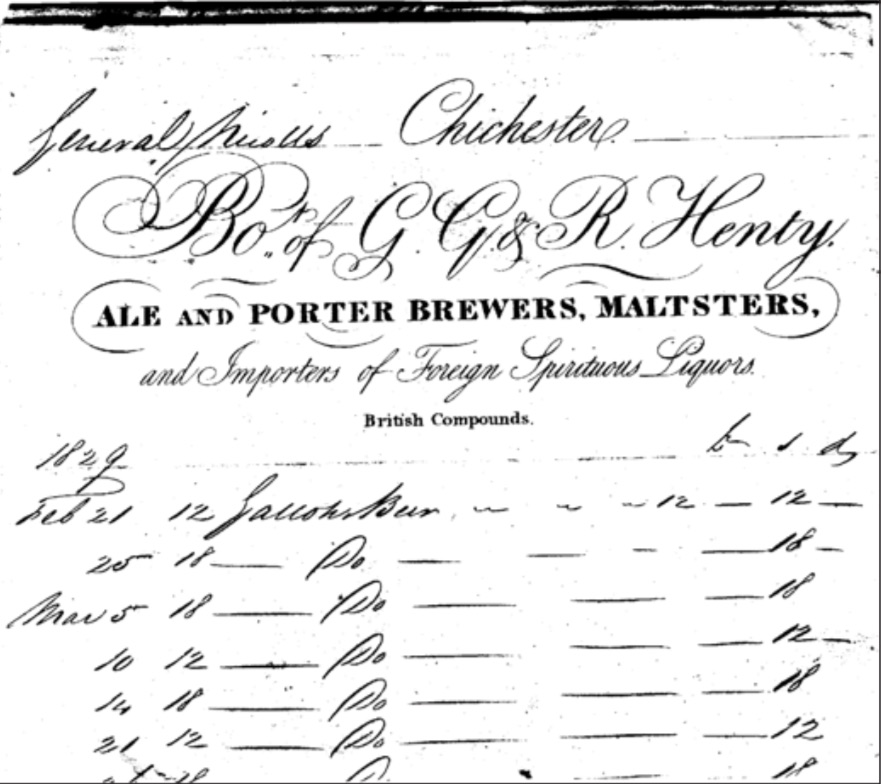 General Nicolls Chichester.
Bo.t of G. G. & R. Henty.
ALE AND PORTER BREWERS, MALTSTERS,
and Importers of Foreign Spirituous Liquors.
British Compounds.
1829 £ s d
Feb 21 12 Gallons Beer 12 — 12 —
25 18 — Do — — — — 18 —
Mar 5 18 — Do — — — 18
10 12 — Do — — — 12 —
14 18 — Do — — — 18
21 12 — Do — — — 12
18 Do 18